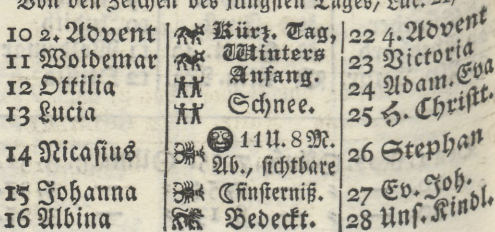 Von den Zeichen des jüngsten Tages, Luc. 21,
10 2. Advent Kürz. Tag, 22 4. Advent
11 Woldemar Winters 23 Victoria
12 Ottilia Anfang. 24 Adam. Eva
13 Lucia Schnee. 25 H. Christt.
11 U. 8 M.
14 Nicasius Ab., sichtbare 26 Stephan
15 Johanna Finsterniß. 27 Ev. Joh.
16 Albina Bedeckt. 28 Uns. Kindl.